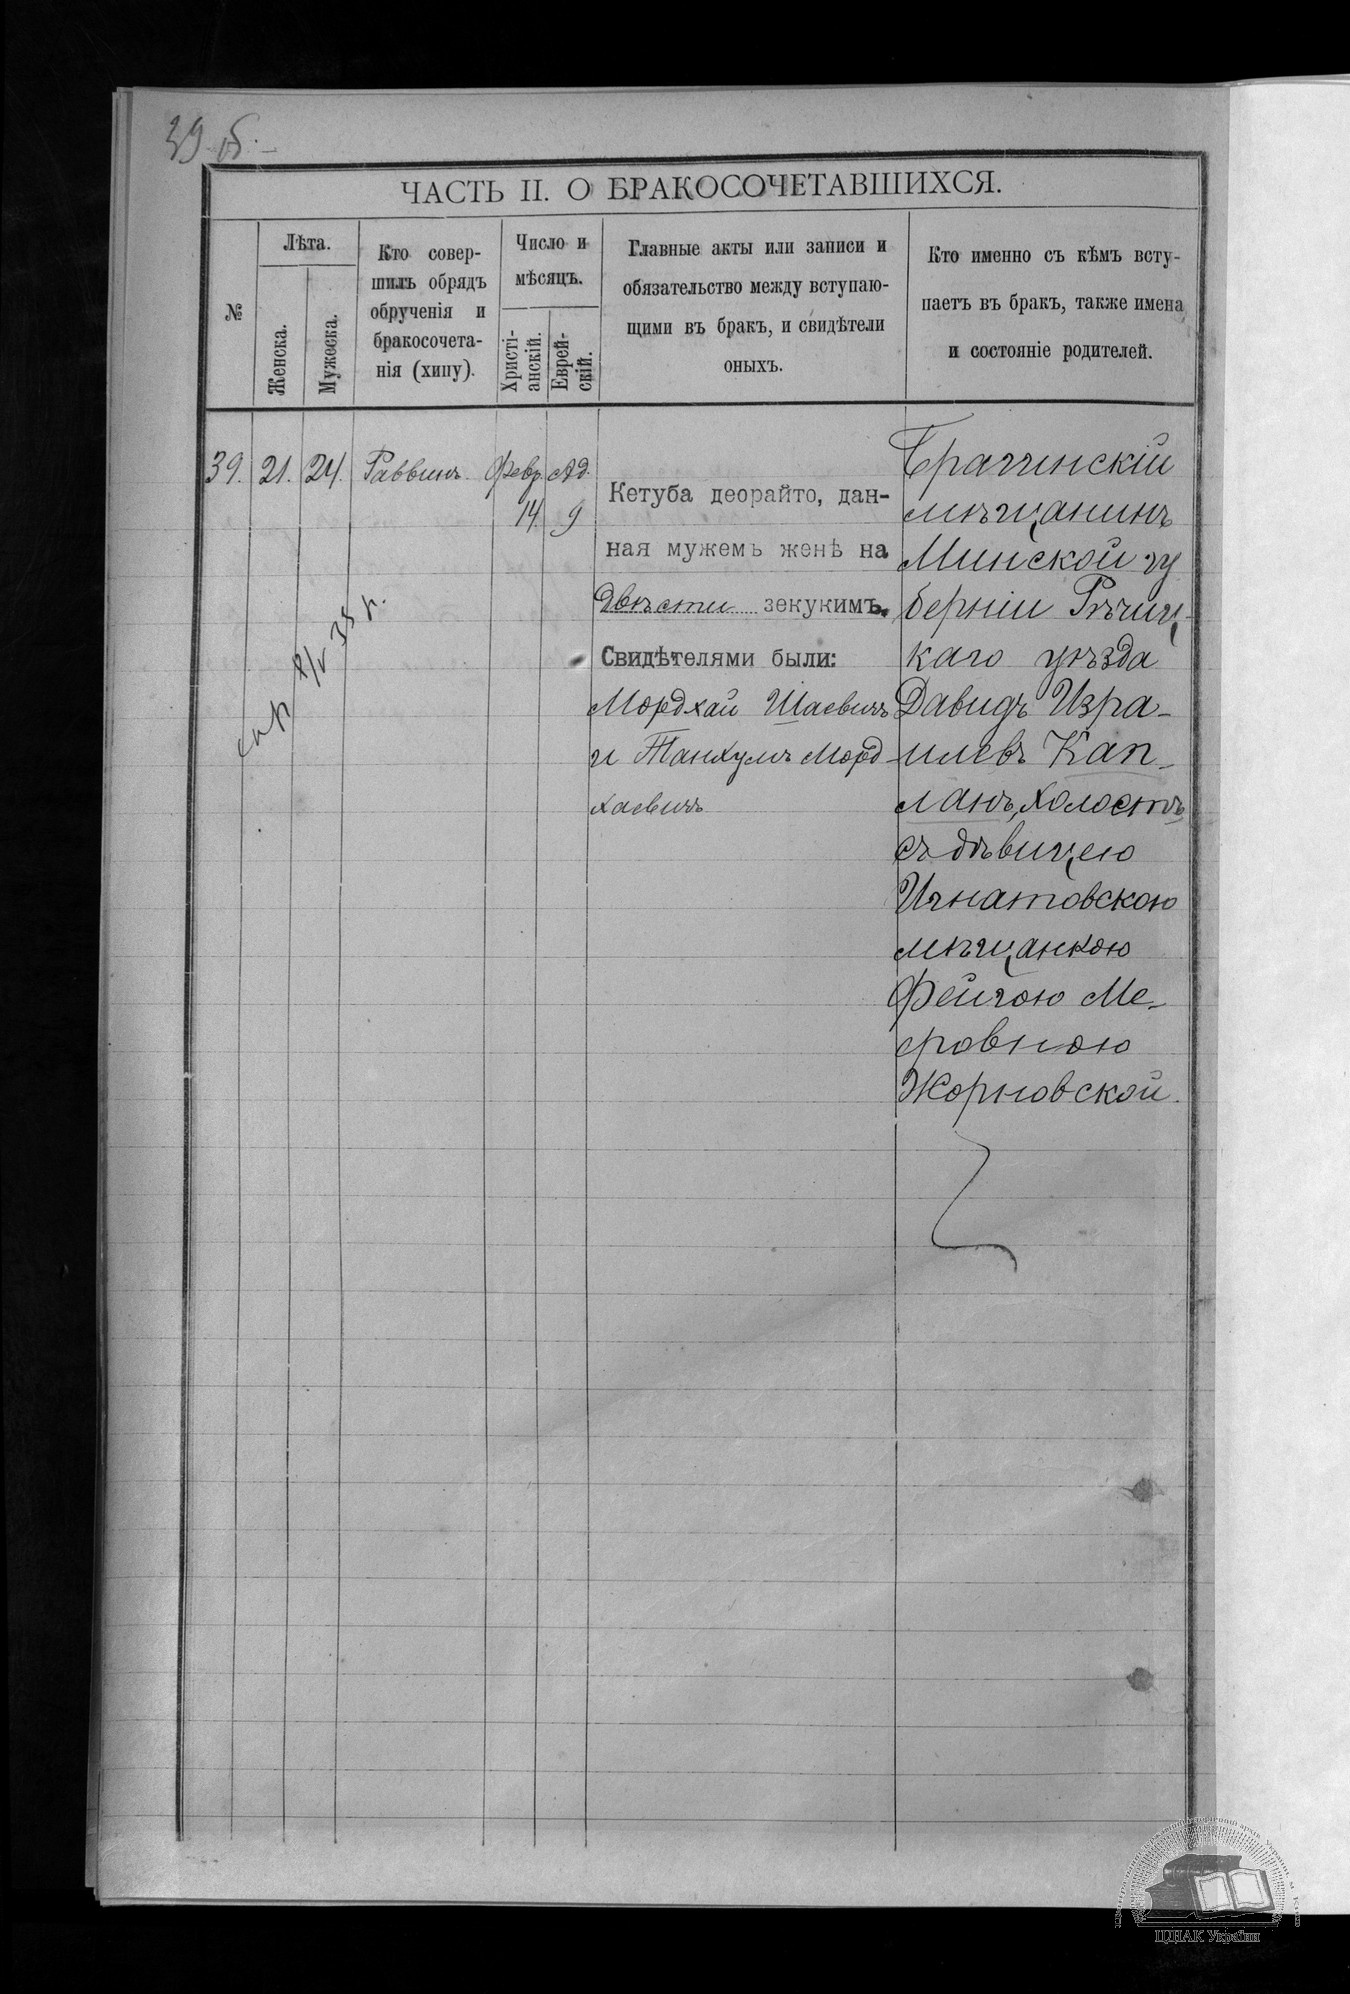 39 об.
ЧАСТЬ II. О БРАКОСОЧЕТАВШИХСЯ.
№
Лѣта.
Женска.
Мужеска.
Кто совер-
шилъ обрядъ
обрученія и
бракосочета-
нія (хипу).
Число и
мѣсяцъ.
Христі-
анскій.
Еврей-
скій.
Главные акты или записи и
обязательство между вступаю-
щими въ бракъ, и свидѣтели
оныхъ.
Кто именно съ кѣмъ всту-
паетъ въ бракъ, также имена
и состояніе родителей.
39.
21.
24.
Раввинъ
Февр.
14
Ад.
9
Кетуба деорайто, дан-
ная мужемъ женѣ на
двѣсти зекукимъ.
Свидѣтелями были:
Мордхай Шаевичъ
и Танхумъ Морд
хаевичъ
Брагинскій
мѣщанинъ
Минской гу
берніи Рѣчиц-
каго уѣзда
Давидъ Изра-
илевъ Кап-
ланъ, холостъ,
съ дѣвицею
Игнатовскою
мѣщанкою
Фейгою Ме-
ровною
Жорновской.
ЦДІАК України